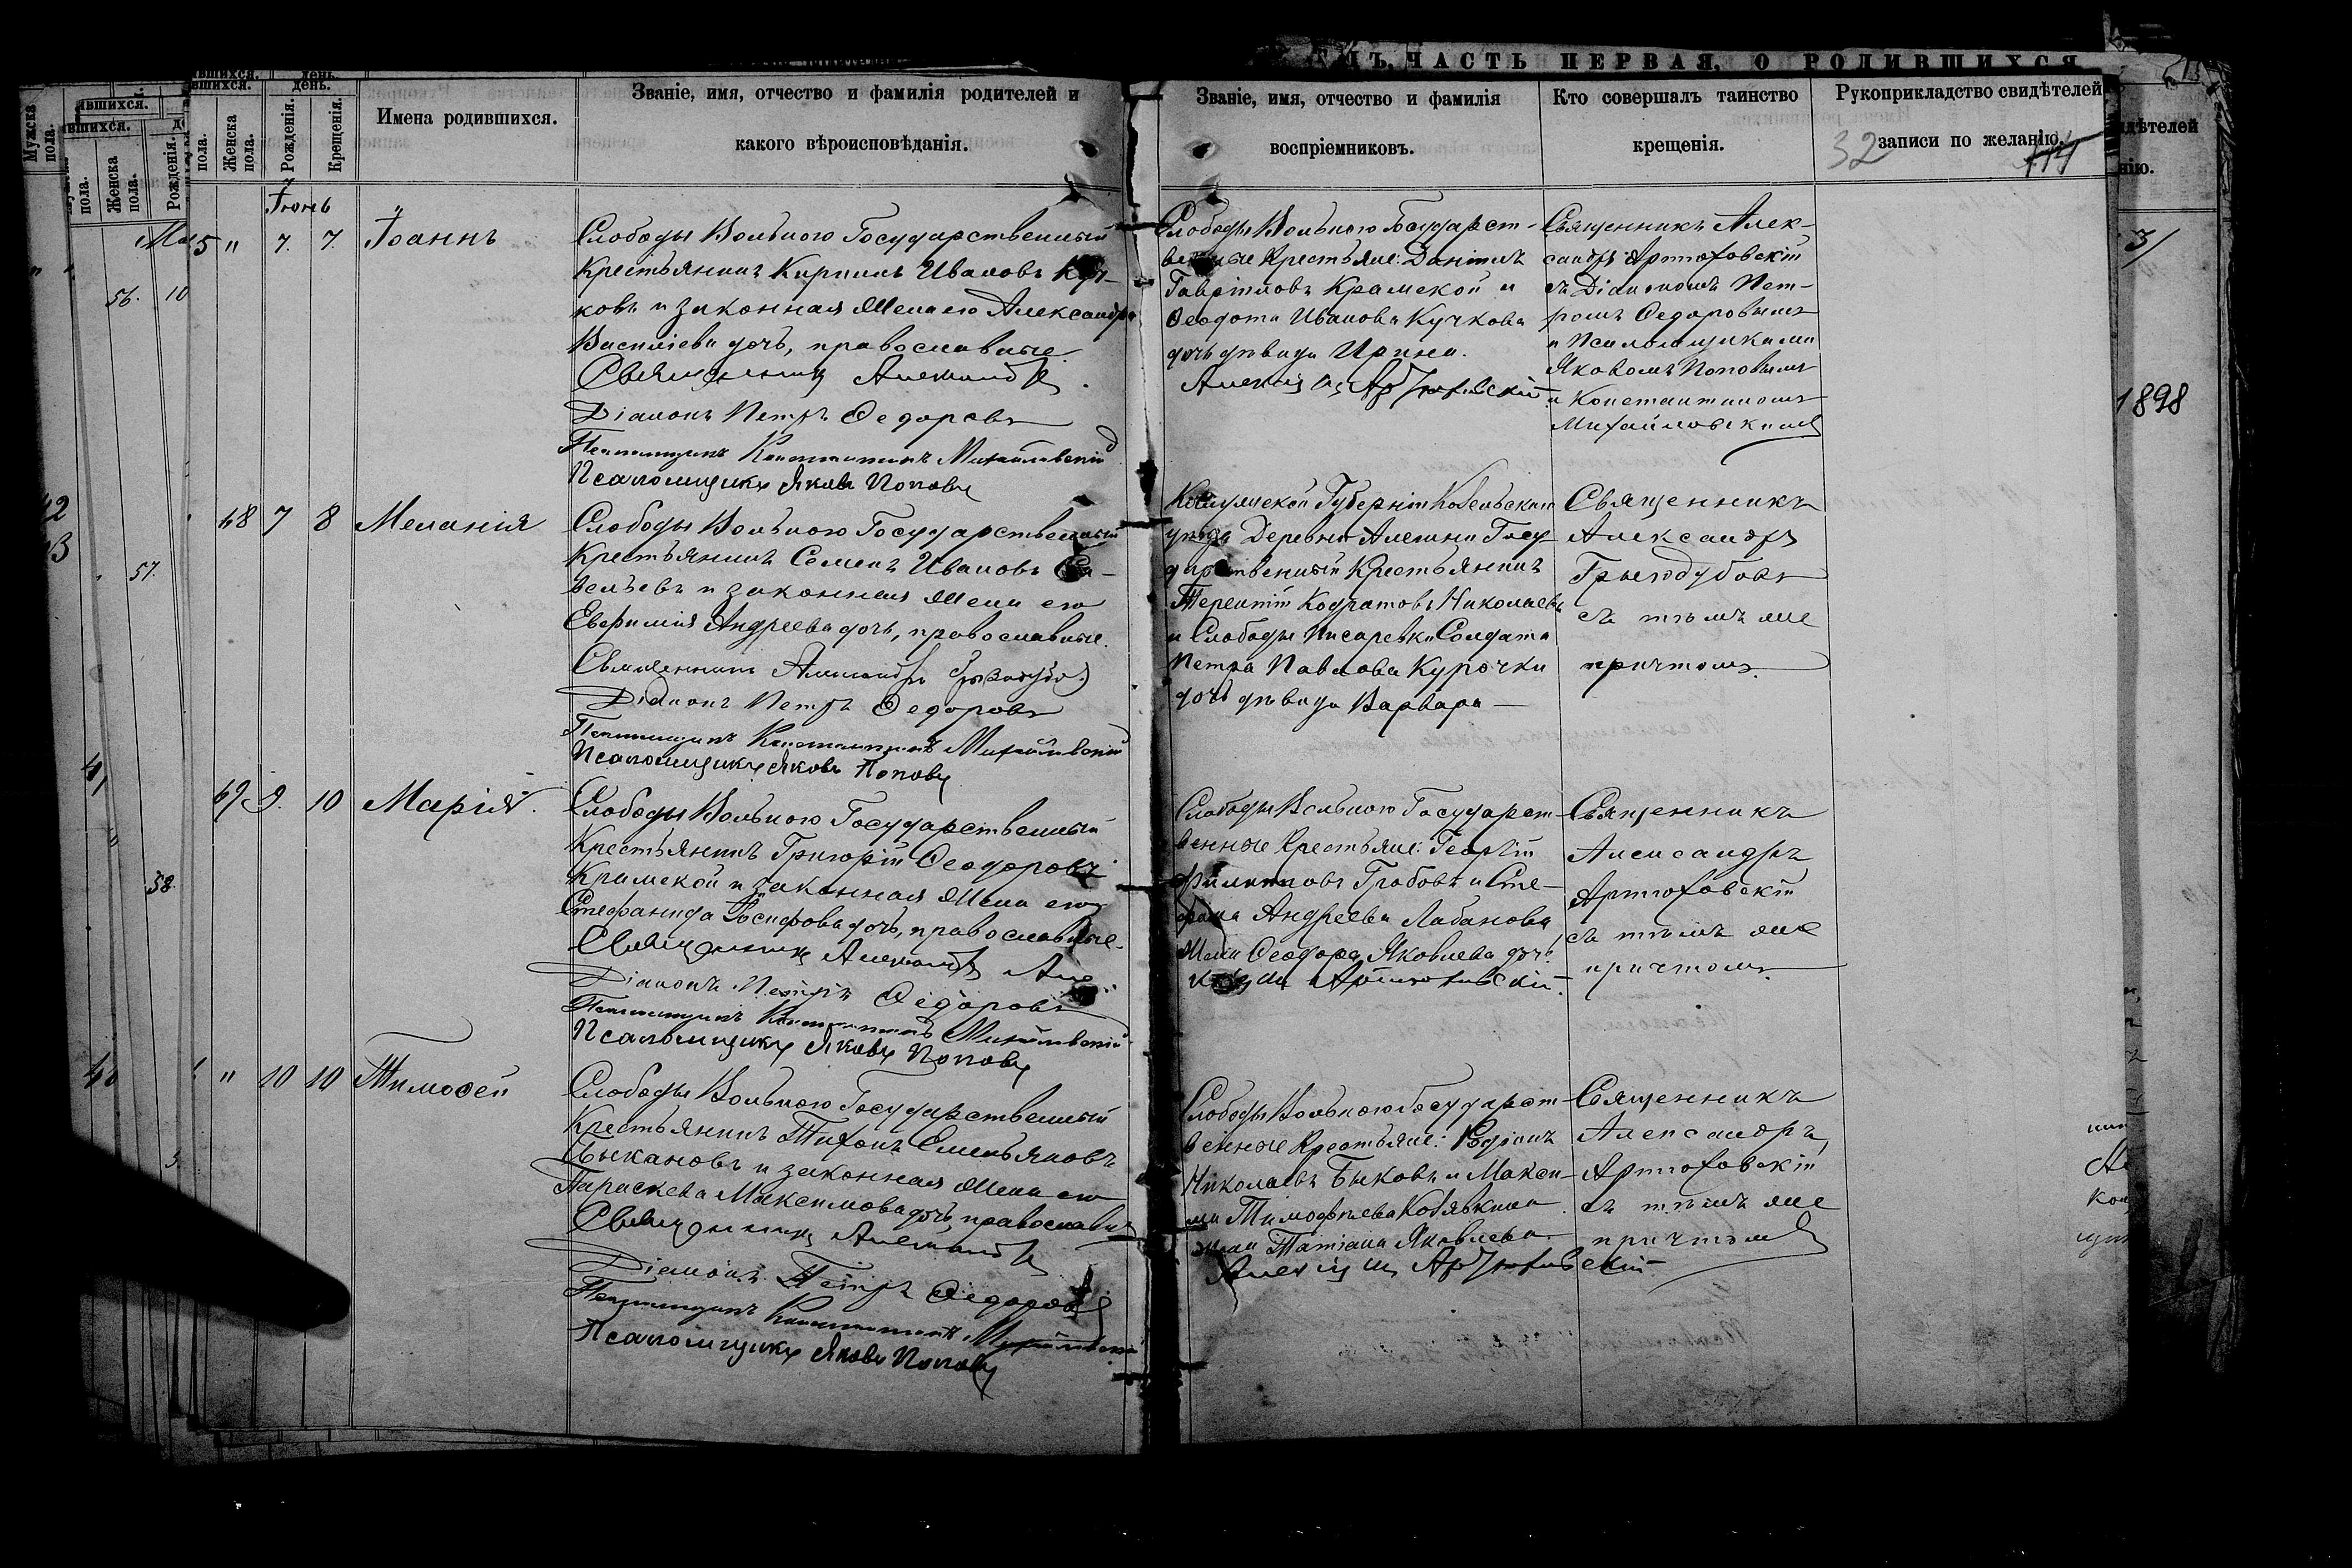 Ъ, ЧАСТЬ ПЕРВАЯ, О РОДИВШИХСЯ
Мужска пола.
Женска пола.
Рожденія.
Крещенія.
день.
Имена родившихся.
Званіе, имя, отчество и фамилія родителей и
какого вѣроисповѣданія.
Званіе, имя, отчество и фамилія
воспріемниковъ.
Кто совершалъ таинство
крещенія.
Рукоприкладство свидѣтелей
записи по желанію.
32
Іюнь
5 " 7. 7. Іоаннъ
Слободы Вольного Государственный
Крестьянинъ Кириллъ Ивановъ Куч-
ковъ и законная жена его Александра
Василіева дочь, православные.
Священникъ Александръ
Діаконъ Петръ Ѳедоровъ
Псаломщикъ Константинъ Михайловскій
Псаломщикъ Яковъ Поповъ
Слободы Вольного Государст-
венные Крестьяне: Даніилъ
Гавріиловъ Крамской и
Ѳеодота Иванова Кучкова
дочь дѣвица Ирина.
Алексіевъ Артюховскій
Священникъ Алек-
сандръ Артюховскій
съ Діакономъ Пет-
ромъ Ѳедоровымъ
и Псаломщиками
Яковомъ Поповымъ
и Константиномъ
Михайловскимъ
48 7 8 Меланія
Слободы Вольного Государственный
Крестьянинъ Семенъ Ивановъ Са-
вельевъ и законная жена его
Евфимія Андреева дочь, православные.
Священникъ Александръ Грызодубовъ
Діаконъ Петръ Ѳедоровъ
Псаломщикъ Константинъ Михайловскій
Псаломщикъ Яковъ Поповъ
Калужской Губерніи
уѣзда Деревни Алешни Госу-
дарственный Крестьянинъ
Терентій Кодратовъ Николаевъ
и Слободы Писаревки Солдата
Петра Павлова Курочки
дочь дѣвица Варвара
Священникъ
Александръ
Грызодубовъ
съ тѣмъ же
причтомъ.
49 9. 10 Марія.
Слободы Вольного Государственный
Крестьянинъ Григорій Ѳеодоровъ
Крамской и законная жена его
Стефанида Іосифова дочь, православные.
Священникъ Александръ
Діаконъ Петръ Ѳедоровъ
Псаломщикъ Константинъ Михайловскій
Псаломщикъ Яковъ Поповъ
Слободы Вольного Государст-
венные Крестьяне: Георгій
Филипповъ Грабовъ и Сте-
фана Андреева Лабанова
жена Ѳеодора Яковлева дочь
Артюховскій.
Священникъ
Александръ
Артюховскій
съ тѣмъ же
причтомъ
" 10 10 Тимоѳей
Слободы Вольного Государственный
Крестьянинъ Тихонъ Емельяновъ
Цыкановъ и законная жена его
Параскева Максимова дочь, православные
Священникъ Александръ
Діаконъ Петръ Ѳедоровъ
Псаломщикъ Константинъ Михайловскій
Псаломщикъ Яковъ Поповъ
Слободы Вольного Государст-
венные Крестьяне: Родіонъ
Николаевъ Быковъ и Макси-
ма Тимофѣева Кобявкина
жена Татіана Яковлева.
Алексіевъ Артюховскій
Священникъ
Александръ
Артюховскій
съ тѣмъ же
причтомъ
56. 10
57.
58.
1898